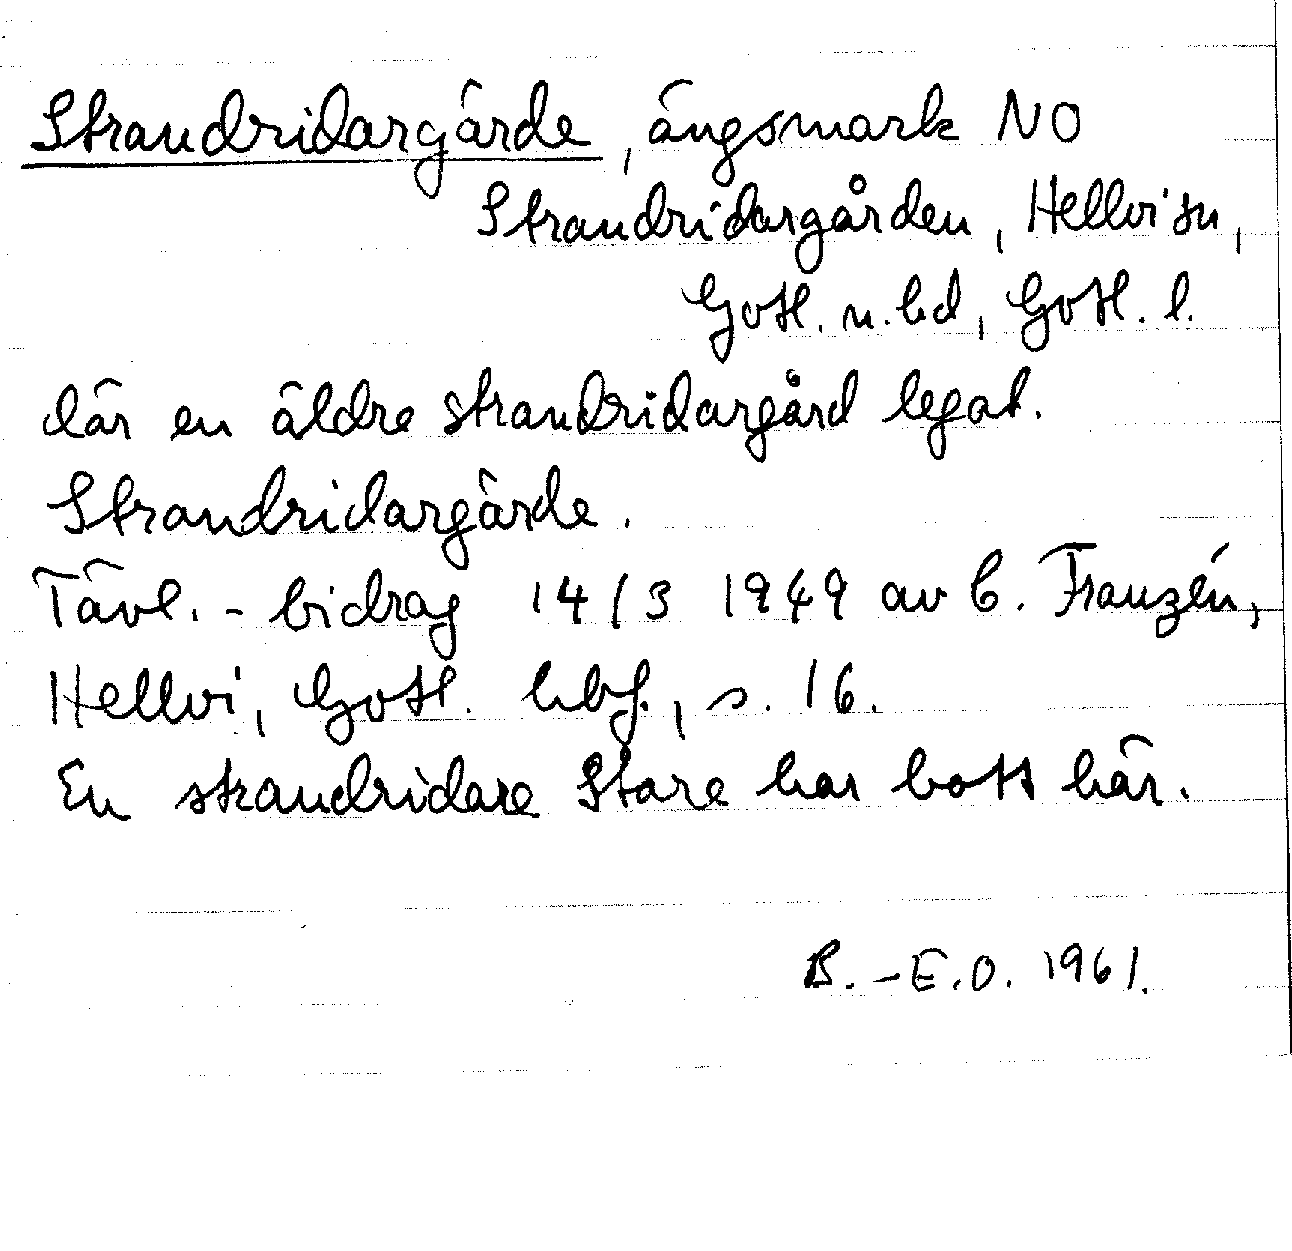 Strandridargärde, ängsmark NO
Strandridargården, Hellvi sn,
Gotl. n. hd, Gotl. l.
där en äldre strandridargård legat.
Strandridargärde.
Tävl. - bidrag 14/3 1949 av C. Franzén,
Hellvi, Gotl. hbf., s. 16.
En strandridare Stare har bott här.
B. - E.O. 1961.